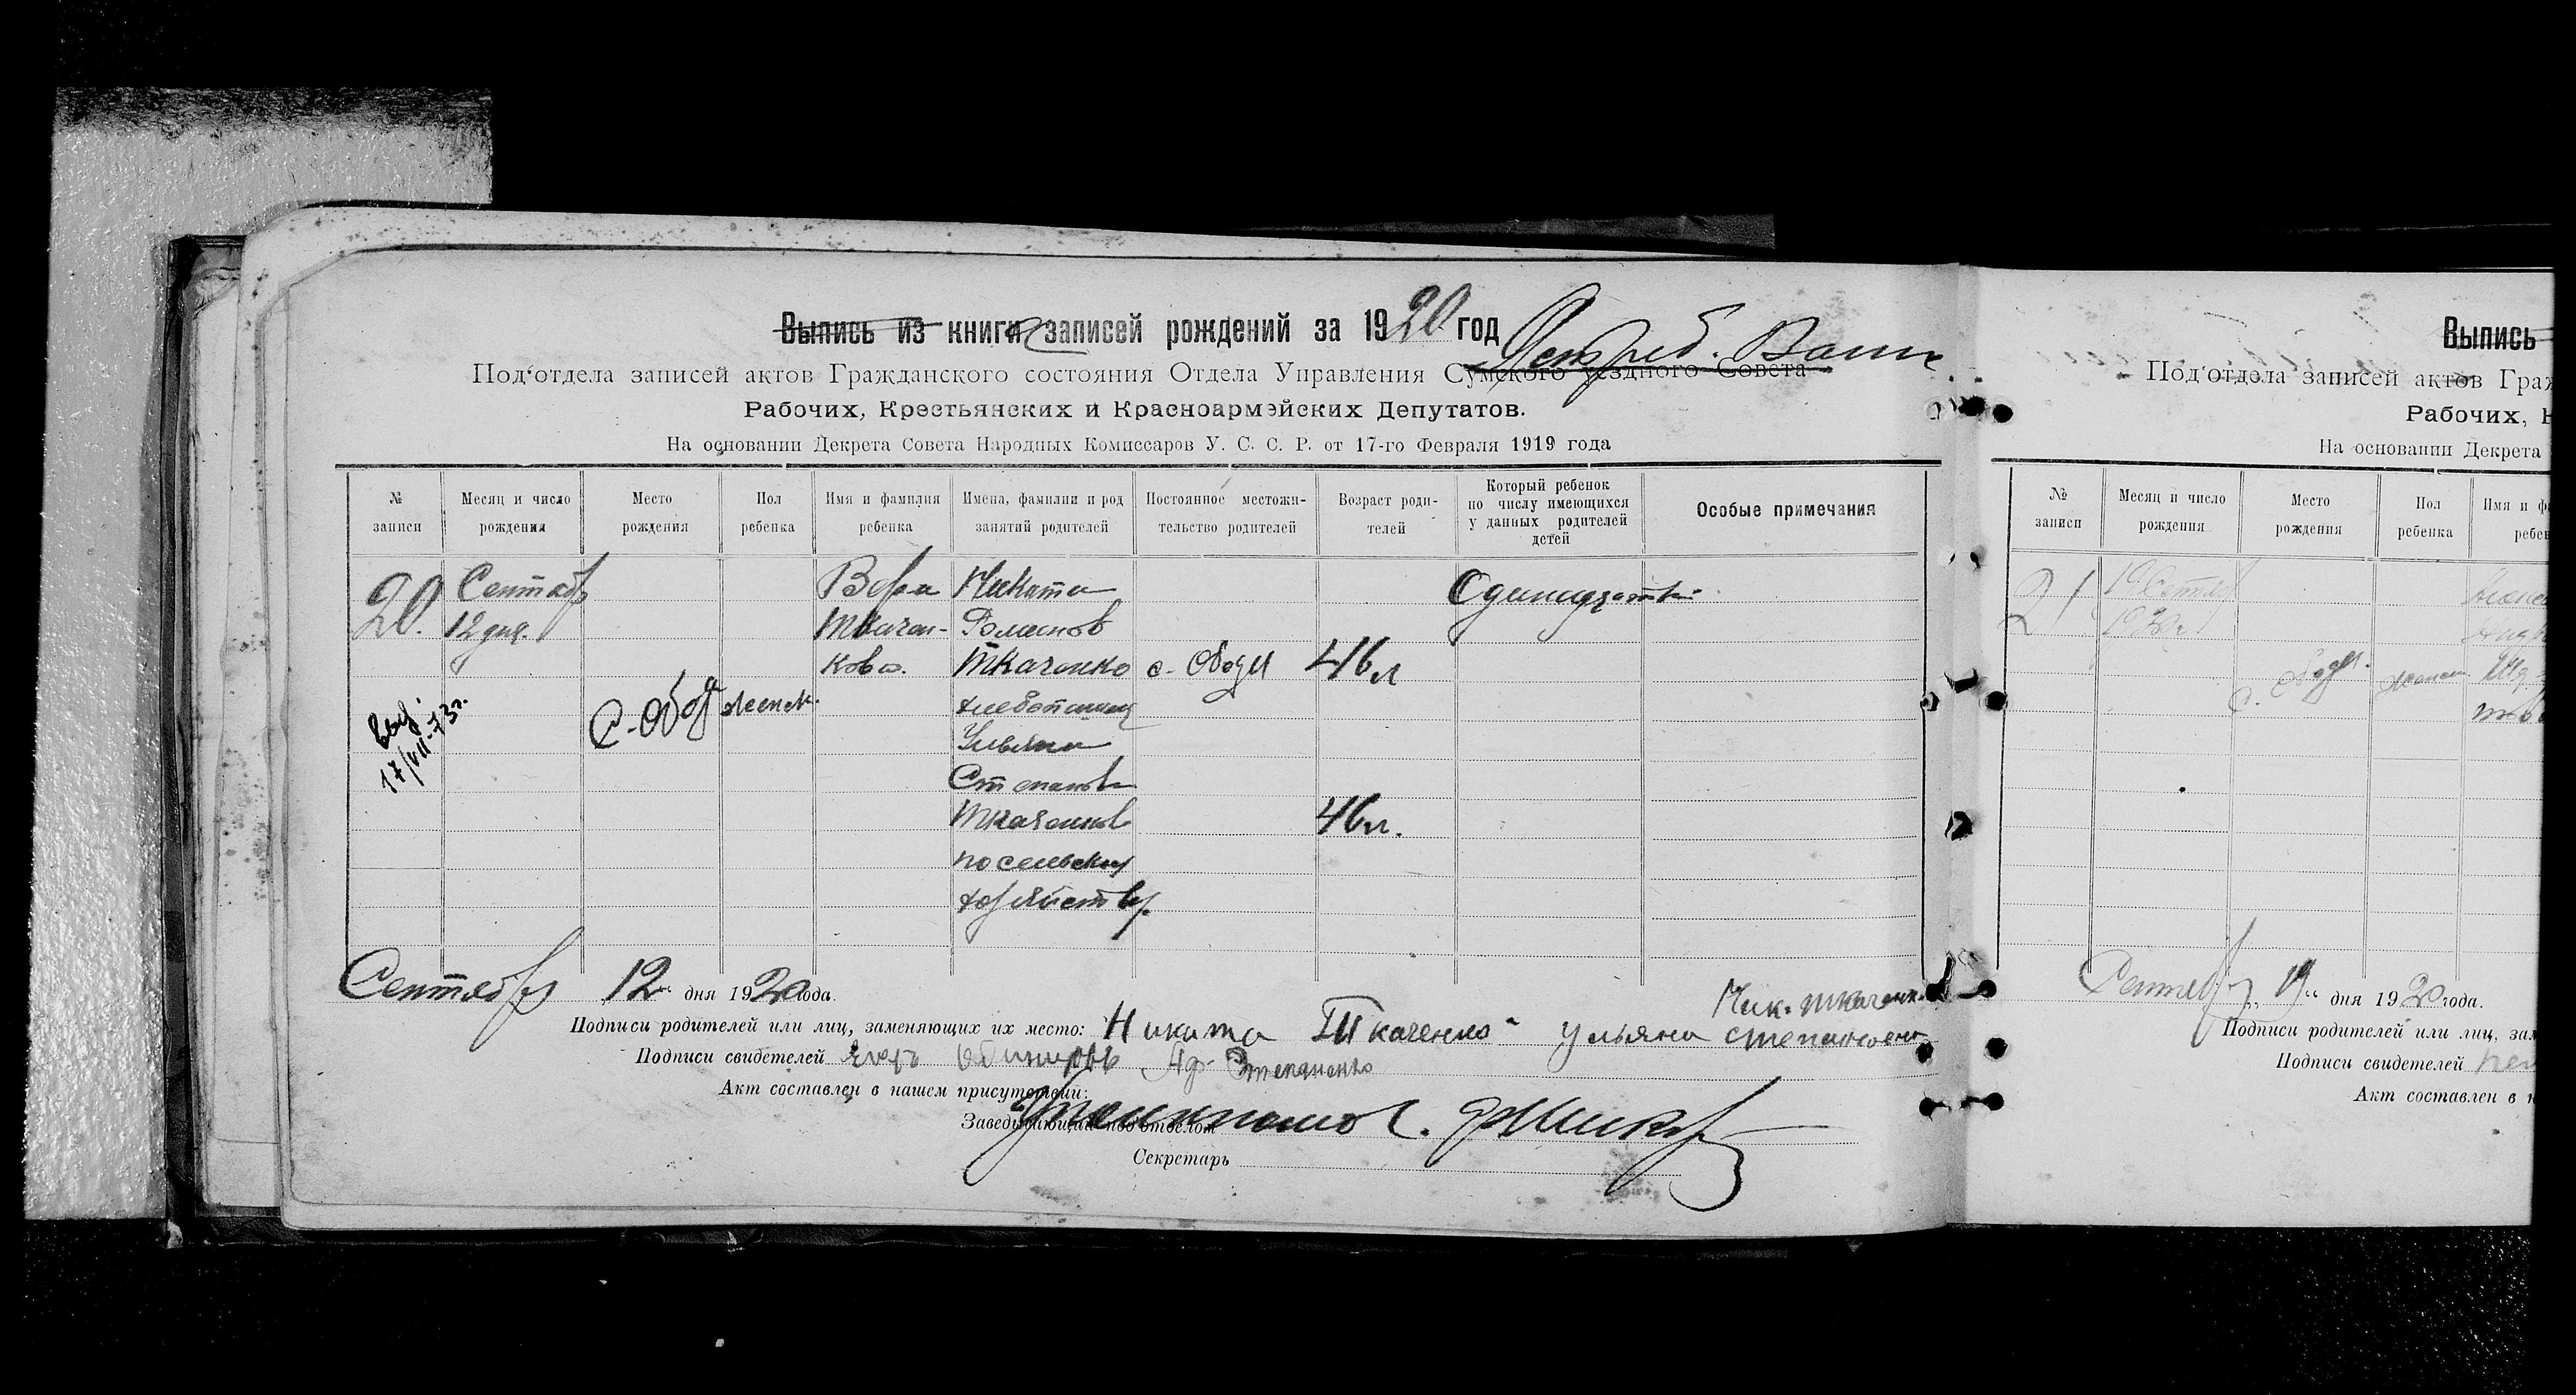 Выпись из книги записей рождений за 1920 год
Под'отдела записей актов Гражданского состояния Отдела Управления Сумского уездного Совета
Рабочих, Крестьянских и Красноармейских Депутатов.
На основании Декрета Совета Народных Комиссаров У. С. С. Р. от 17-го Февраля 1919 года
№ записи
Месяц и число рождения
Место рождения
Пол ребенка
Имя и фамилия ребенка
Имена, фамилии и род занятий родителей
Постоянное местожительство родителей
Возраст родителей
Который ребенок по числу имеющихся у данных родителей детей
Особые примечания
20.
Сентябр
12 дня.
с. Обод
женск.
Вера
Ткачен-
кова.
Никита
Романов
Ткаченко
хлебопашец
Ульяна
Степанов
Ткаченков
по сельскому
хозяйству.
с. Ободы
46 л
46 л.
Выд.
17/VII-73г.
Сентября 12 дня 1920 года.
Ник. Ткаченк
Подписи родителей или лиц, заменяющих их место: Никита Ткаченко Ульяна Степановна
Подписи свидетелей Степаненко
Акт составлен в нашем присутствии:
Заведывающий под'отделом
Секретарь
Выпись
Под'отдела записей актов Граж
Рабочих, К
На основании Декрета
№ записи
Месяц и число рождения
Место рождения
Пол ребенка
Имя и ф
ребен
21
19 Сентяб
1920 г
с. Ободы.
женск.
Сентября 19 дня 1920 года.
Подписи родителей или лиц, зам
Подписи свидетелей
Акт составлен в н